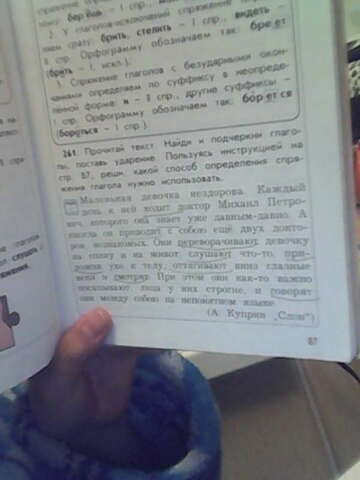 бер нов — I спр.,
2. У глаголов-исключений спряжение
ляем сразу: брить, стелить — I спр., видеть —
II спр. Орфограмму обозначаем так: бре ет
(брить — I, искл.).
3. Спряжение глаголов с безударными окон-
чаниями определяем по суффиксу в неопреде-
лённой форме: и — II спр., другие суффиксы —
I спр. Орфограмму обозначаем так: бор ет ся
(бороться — I спр.)
261. Прочитай текст. Найди и подчеркни глаго-
лы, поставь ударение. Пользуясь инструкцией на
стр. 87, реши, какой способ определения спря-
жения глагола нужно использовать.
Маленькая девочка нездорова. Каждый
день к ней ходит доктор Михаил Петро-
вич, которого она знает уже давным-давно. А
иногда он приводит с собою ещё двух докто-
ров, незнакомых. Они переворачивают девочку
на спину и на живот, слушают что-то, при-
ложив ухо к телу, оттягивают вниз глазные
веки и смотрят. При этом они как-то важно
посапывают, лица у них строгие, и говорят
они между собою на непонятном языке.
(А. Куприн „Слон")
87
глаголов
слушать